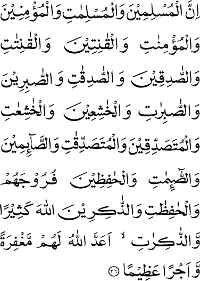 اِنَّ الْمُسْلِمِيْنَ وَالْمُسْلِمٰتِ وَالْمُؤْمِنِيْنَ
وَالْمُؤْمِنٰتِ وَالْقٰنِتِيْنَ وَالْقٰنِتٰتِ
وَالصّٰدِقِيْنَ وَالصّٰدِقٰتِ وَالصّٰبِرِيْنَ
وَالصّٰبِرٰتِ وَالْخٰشِعِيْنَ وَالْخٰشِعٰتِ
وَالْمُتَصَدِّقِيْنَ وَالْمُتَصَدِّقٰتِ وَالصَّآئِمِيْنَ
وَالصّٰٓئِمٰتِ وَالْحٰفِظِيْنَ فُرُوْجَهُمْ
وَالْحٰفِظٰتِ وَالذّٰكِرِيْنَ اللّٰهَ كَثِيْرًا
وَّالذّٰكِرٰتِ ۙ اَعَدَّ اللّٰهُ لَهُمْ مَّغْفِرَةً
وَّاَجْرًا عَظِيْمًا